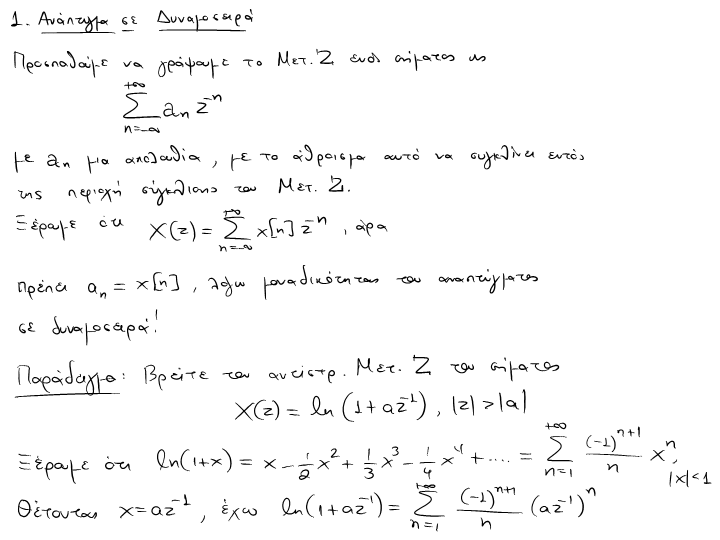 1. Ανάπτυγμα σε Δυναμοσειρά
Προσπαθούμε να γράψουμε το Μετ. Z ενός σήματος ως
\sum_{n=-\infty}^{+\infty} a_n z^{-n}
με a_n μια ακολουθία, με το άθροισμα αυτό να συγκλίνει εντός
της περιοχή σύγκλισης του Μετ. Z.
Ξέρουμε ότι X(z) = \sum_{n=-\infty}^{+\infty} x[n] z^{-n}, άρα
πρέπει a_n = x[n], λόγω μοναδικότητας του αναπτύγματος
σε δυναμοσειρά!
Παράδειγμα: Βρείτε τον αντίστρ. Μετ. Z του σήματος
X(z) = ln(1 + az^{-1}), |z| > |a|
Ξέρουμε ότι ln(1+x) = x - \frac{1}{2}x^2 + \frac{1}{3}x^3 - \frac{1}{4}x^4 + .... = \sum_{n=1}^{+\infty} \frac{(-1)^{n+1}}{n} x^n, |x|<1
Θέτοντας x = az^{-1}, έχω ln(1+az^{-1}) = \sum_{n=1}^{+\infty} \frac{(-1)^{n+1}}{n} (az^{-1})^n